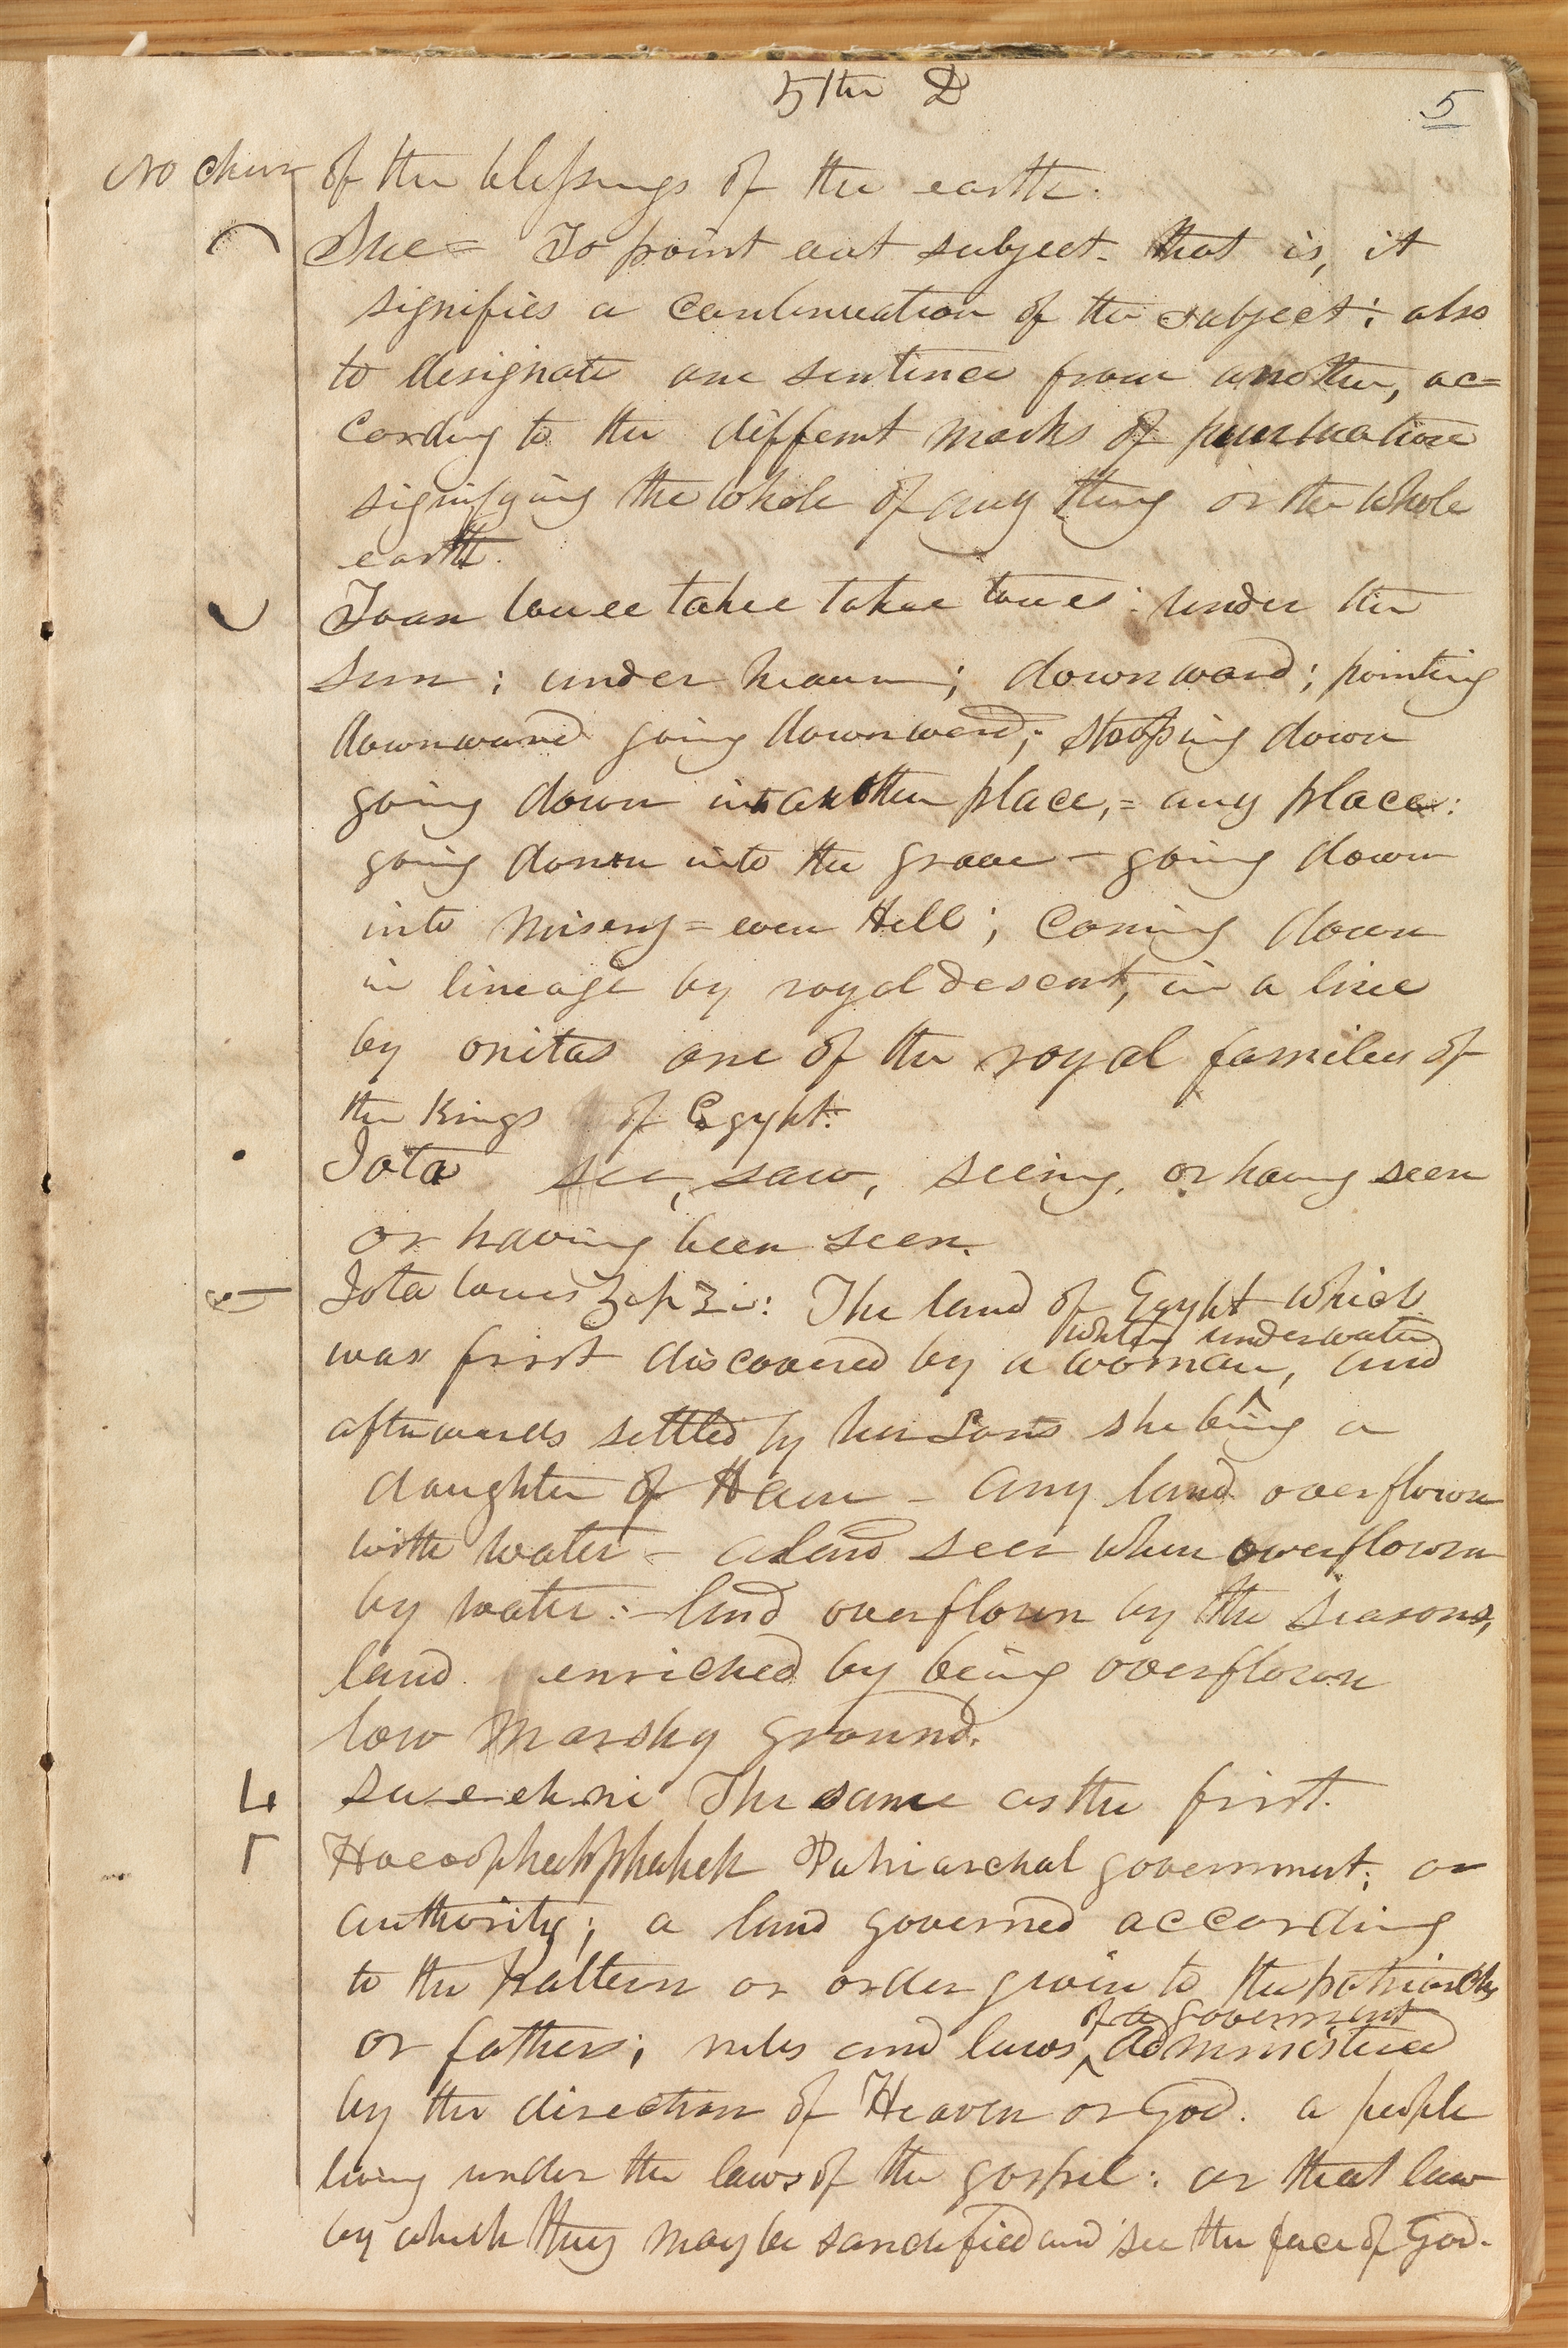 5th D
5
No char of the blessings of the earth.
Sue= To point out subject. that is, it
signifies a continuation of the subject; also
to designate one sentence from another, ac=
cording to the different marks of punctuation
signifying the whole of any thing or the whole
earth.
Toan touee takee takee toues: under the
Sun; under heaven; downward; pointing
downward going downward; stooping down
going down into another place,= any place:
going down into the grave – going down
into misery = even Hell; coming down
in lineage by royal descent, in a line
by onitas one of the royal families of
the Kings of Egypt.
Iota see, saw, seeing, or having seen
or having been seen.
Iota toues Zip Zi: The land of Egypt which
was first discovered by a woman, and
whiles underwater
afterwards settled by her Sons she being a
daughter of Ham – any land overflown
with water – a land seen when overflown
by water:– land overflown by the seasons,
land enriched by being overflown
low marshy ground.
Su-e-eh-ni The same as the first.
Hoeoophahphaheh Patriarchal government; or
authority; a land governed according
to the pattern or order given to the patriarchs
or fathers; rules and laws administered
of a government
by the direction of Heaven or God. a people
living under the laws of the gospel: or that law
by which they may be sanctified and see the face of God.